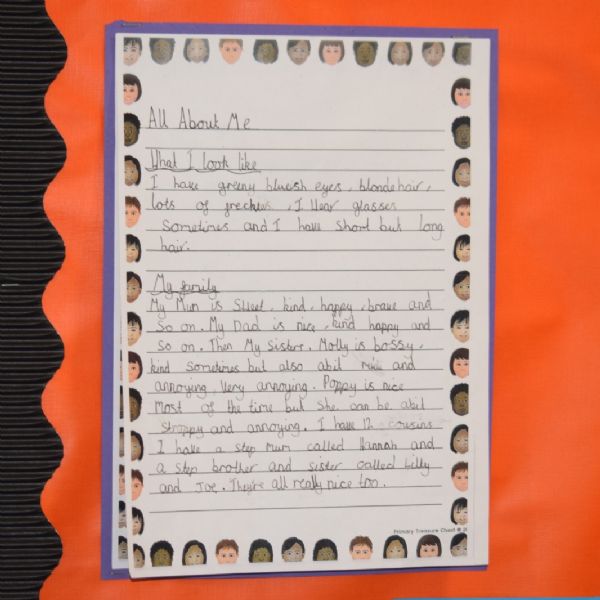 All About Me
What I look like
I have greeny blueish eyes, blonde hair,
lots of freckles, I Wear glasses
Sometimes and I have Short but long
hair.
My family
My Mum is Sweet, kind, happy, brave and
So on. My Dad is nice, kind happy and
So on. Then My Sisters. Molly is bossy,
kind Sometimes but also abit rude and
annoying. Very annoying. Poppy is nice
Most of the time but She can be abit
Stroppy and annoying. I have 12 cousins
I have a Step Mum called Hannah and
a Step brother and sister called Lilly
and Joe. They're all really nice too.
Primary Treasure Chest ©